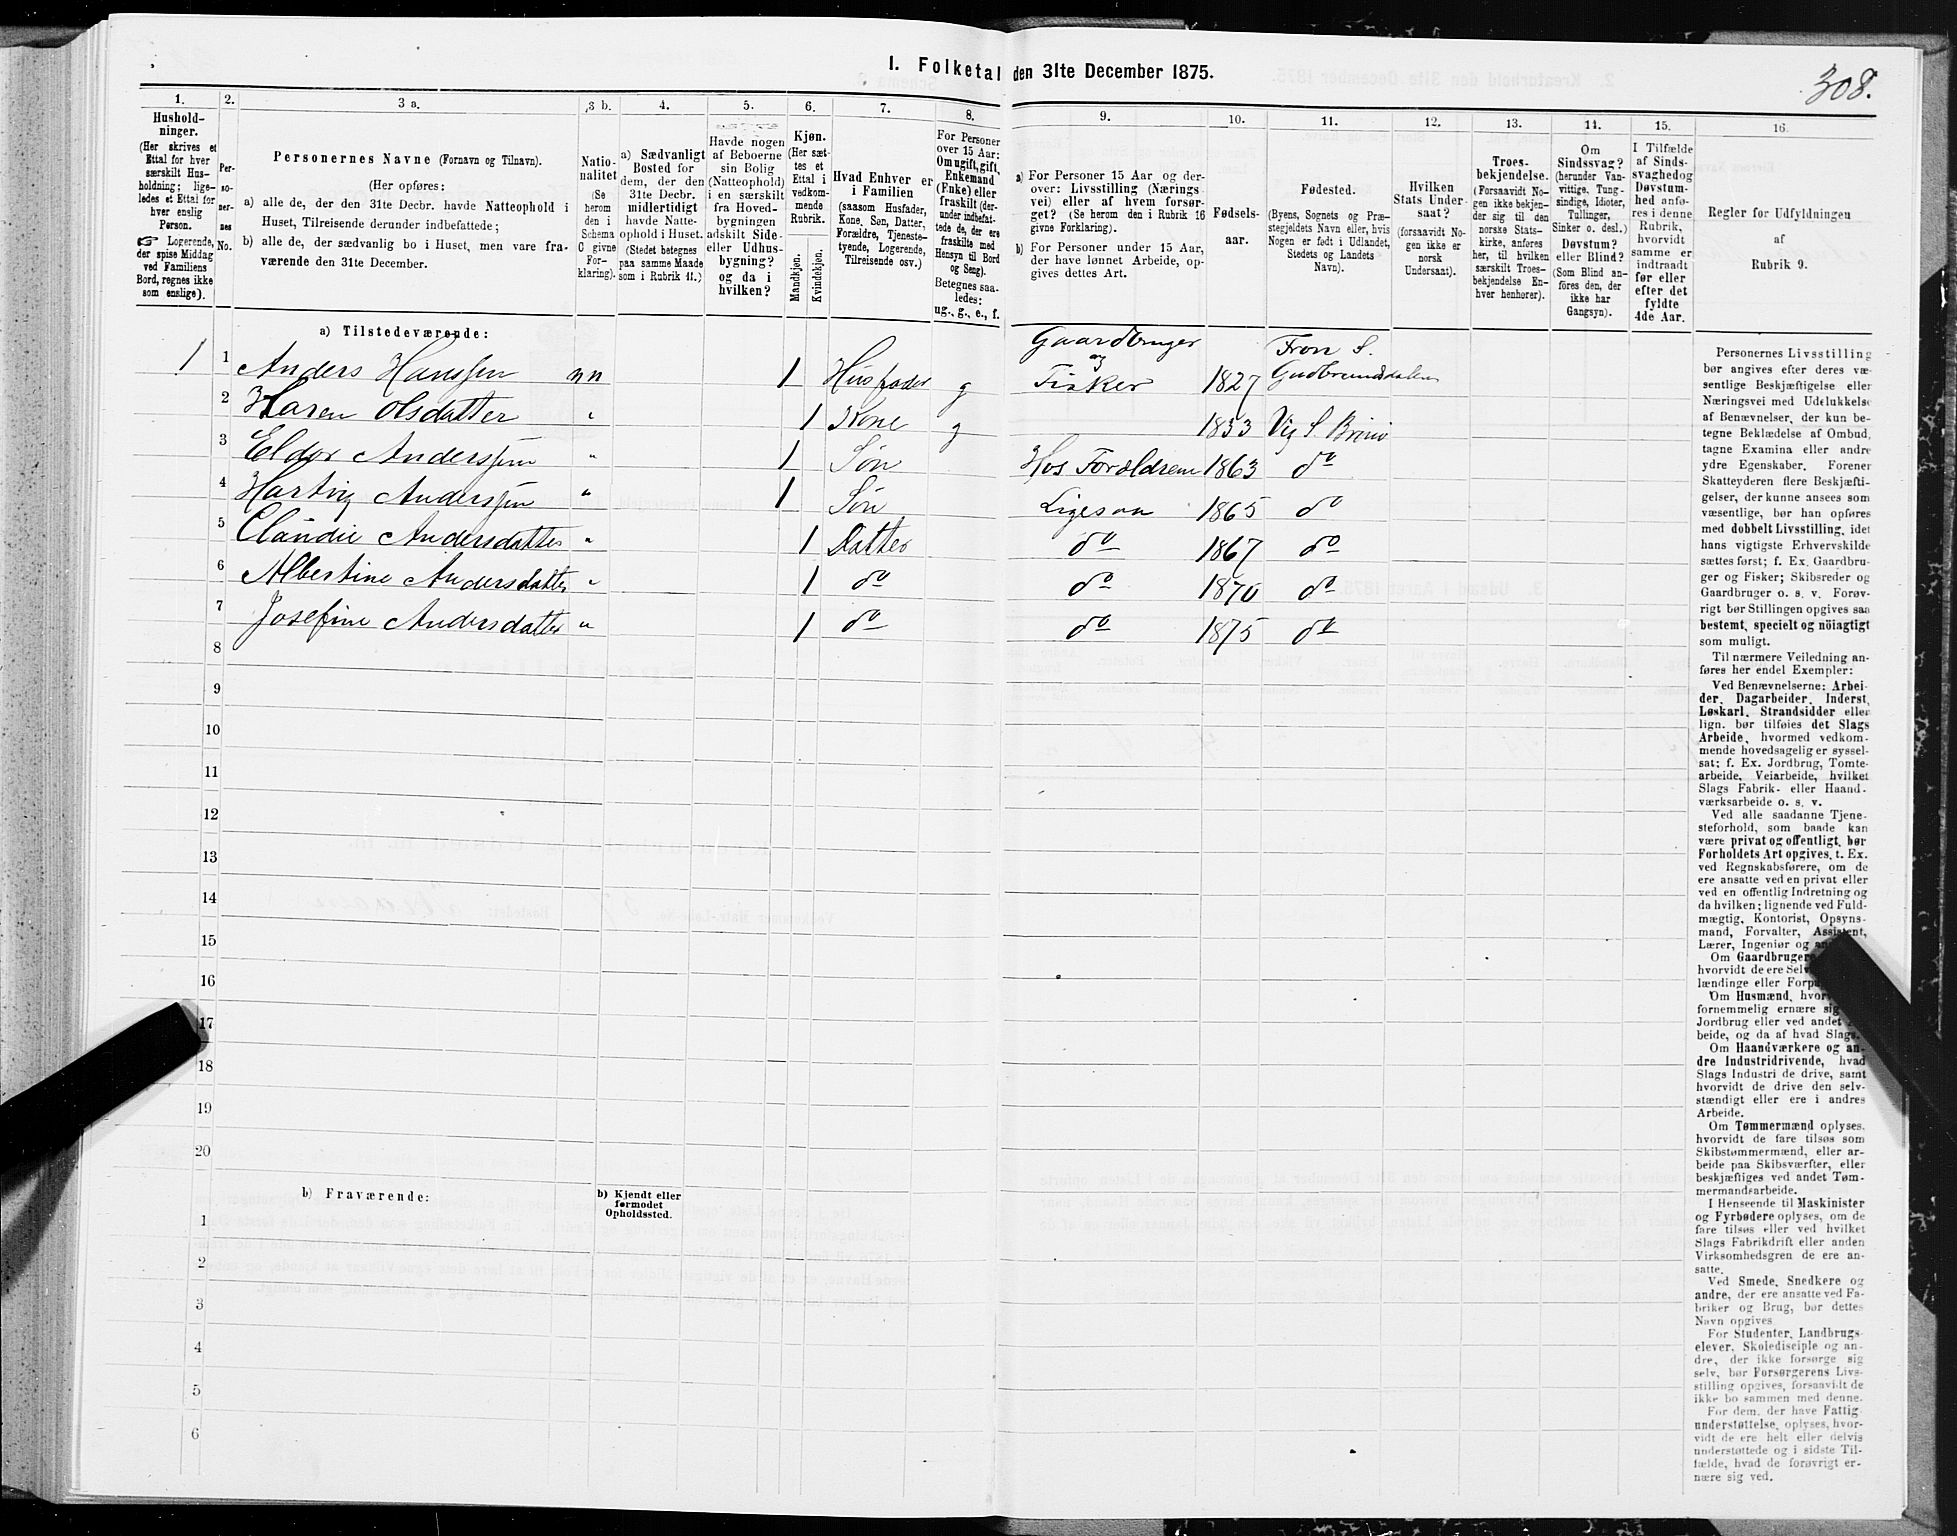 I. Folketal den 31te December 1875.
308.
1.
Hushold-
ninger.
(Her skrives et
Ettal for hver
særskilt Hus-
holdning; lige-
ledes et Ettal for
hver enslig
Person.
☞ Logerende,
der spise Middag
ved Familiens
Bord, regnes ikke
som enslige).
2.
Per-
so-
ner-
nes
No.
3 a.
Personernes Navne (Fornavn og Tilnavn).
(Her opføres:
a) alle de, der den 31te Decbr. havde Natteophold i
Huset, Tilreisende derunder indbefattede;
b) alle de, der sædvanlig bo i Huset, men vare fra-
værende den 31te December.
3 b.
Natio-
nalitet
(Se
herom
den i
Schema
C givne
For-
klaring).
4.
a) Sædvanligt
Bosted for
dem, der den
31te Decbr.
midlertidigt
havde Natte-
ophold i Huset.
(Stedet betegnes
paa samme Maade
som i Rubrik 11.)
5.
Havde nogen
af Beboerne
sin Bolig
(Natteophold)
i en særskilt
fra Hoved-
bygningen
adskilt Side-
eller Udhus-
bygning?
og da i
hvilken?
6.
Kjøn.
(Her sæt-
tes et
Ettal i
vedkom-
mende
Rubrik.
Mandkjøn.
Kvindekjøn.
7.
Hvad Enhver er
i Familien
(saasom Husfader,
Kone, Søn, Datter,
Forældre, Tjeneste-
tyende, Logerende,
Tilreisende osv.)
8.
For Personer
over 15 Aar:
Om ugift, gift,
Enkemand
(Enke) eller
fraskilt (der-
under indbefat-
tede de, der ere
fraskilte med
Hensyn til Bord
og Seng).
Betegnes saa-
ledes:
ug., g., e., f.
9.
a) For Personer 15 Aar og der-
over: Livsstilling (Nærings-
vei) eller af hvem forsør-
get? (Se herom den i Rubrik 16
givne Forklaring).
b) For Personer under 15 Aar,
der have lønnet Arbeide, op-
gives dettes Art.
10.
Fødsels-
aar.
11.
Fødested.
(Byens, Sognets og Præ-
stegjeldets Navn eller, hvis
Nogen er født i Udlandet,
Stedets og Landets
Navn).
12.
Hvilken
Stats Under-
saat?
(forsaavidt No-
gen ikke er
norsk
Undersaat).
13.
Troes-
bekjendelse.
(Forsaavidt No-
gen ikke bekjen-
der sig til den
norske Stats-
kirke, anføres
her, til hvilken
særskilt Troes-
bekjendelse En-
hver henhører).
14.
Om
Sindssvag?
(herunder Van-
vittige, Tung-
sindige, Idioter,
Tullinger,
Sinker o. desl.)
Døvstum?
eller Blind?
(Som Blind an-
føres den, der
ikke har
Gangsyn).
15.
I Tilfælde
af Sinds-
svaghed og
Døvstum-
hed anfø-
res i denne
Rubrik,
hvorvidt
samme er
indtraadt
før eller
efter det
fyldte
4de Aar.
16.
Regler for Udfyldningen
af
Rubrik 9.
a) Tilstedeværende:
Gaardbruger Fron S.
1 1 Anders Hanssen nn 1 Husfader g og Fisker 1827 Gudbrandsdalen
2 Karen Olsdatter " 1 Kone g 1833 Vig S. Brønø
3 Eldor Anderssen " 1 Søn Hos Forældrene 1863 do
4 Hartvig Anderssen " 1 Søn Ligesaa 1865 do
5 Claudie Andersdatter " 1 Datter do 1867 do
6 Albertine Andersdatter " 1 do do 1870 do
7 Josefine Andersdatter " 1 do do 1875 do
8
9
10
11
12
13
14
15
16
17
18
19
20
b) Fraværende:
b) Kjendt eller
formodet
Opholdssted.
1
2
3
4
5
6
Personernes Livsstilling
bør angives efter deres væ-
sentlige Beskjæftigelse eller
Næringsvei med Udelukkelse
af Benævnelser, der kun be-
tegne Beklædelse af Ombud,
tagne Examina eller andre
ydre Egenskaber. Forener
Skatteyderen flere Beskjæfti-
gelser, der kunne ansees som
væsentlige, bør han opføres
med dobbelt Livsstilling, idet
hans vigtigste Erhvervskilde
sættes først; f. Ex. Gaardbru-
ger og Fisker; Skibsreder og
Gaardbruger o. s. v. Forøv-
rigt bør Stillingen opgives saa
bestemt, specielt og nöiagtigt
som muligt.
Til nærmere Veiledning an-
føres her endel Exempler:
Ved Benævnelserne: Arbei-
der, Dagarbeider, Inderst,
Løskarl, Strandsidder eller
lign. bør tilføies det Slags
Arbeide, hvormed vedkom-
mende hovedsagelig er syssel-
sat; f. Ex. Jordbrug, Tomte-
arbeide, Veiarbeide, hvilket
Slags Fabrik- eller Haand-
værksarbeide o. s. v.
Ved alle saadanne Tjene-
steforhold, som baade kan
være privat og offentligt, bør
Forholdets Art opgives, t. Ex.
ved Regnskabsførere, om de
ere ansatte ved en privat eller
ved en offentlig Indretning og
da hvilken; lignende ved Fuld-
mægtig, Kontorist, Opsyns-
mand, Forvalter, Assistent,
Lærer, Ingeniør og
Om Gaardbrugere
hvorvidt de ere Selv
lændinge eller
Om Husmænd,
fornemmelig ernære
Jordbrug eller ved andet
beide, og da af hvad Slags.
Om Haandværkere og an-
dre Industridrivende, hvad
Slags Industri de drive, samt
hvorvidt de drive den selv-
stændigt eller ere i andres
Arbeide.
Om Tømmermænd oplyses,
hvorvidt de fare tilsøs som
Skibstømmermænd, eller ar-
beide paa Skibsværfter, eller
beskjæftiges ved andet Tøm-
mermandsarbeide.
I Henseende til Maskinister
og Fyrbødere oplyses, om de
fare tilsøs eller ved hvilket
Slags Fabrikdrift eller anden
Virksomhedsgren de ere an-
satte.
Ved Smede, Snedkere og
andre, der ere ansatte ved Fa-
briker og Brug, bør dettes
Navn opgives.
For Studenter, Landbrugs-
elever, Skoledisciple og an-
dre, der ikke forsørge sig
selv, bør Forsørgerens Livs-
stilling opgives, forsaavidt de
ikke bo sammen med denne.
For dem, der have Fattig-
understøttelse, oplyses, hvor-
vidt de ere helt eller delvis
understøttede og i sidste Til-
fælde, hvad de forøvrigt er-
nære sig ved.